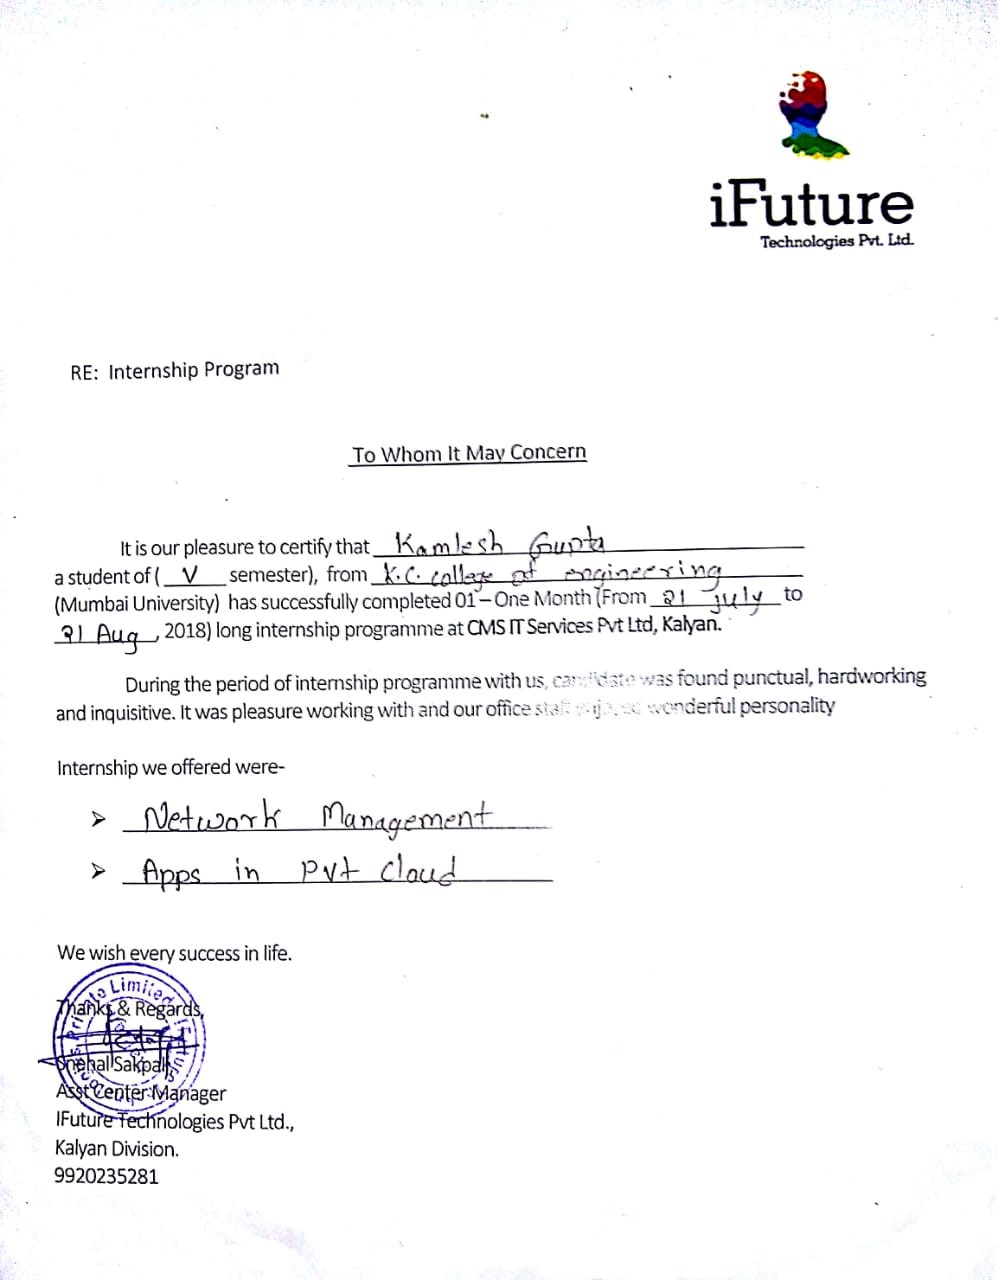 iFuture
Technologies Pvt. Ltd.
RE: Internship Program
To Whom It May Concern
It is our pleasure to certify that Kamlesh Gupta
a student of ( V semester), from K.C. college of engineering
(Mumbai University) has successfully completed 01 – One Month (From 21 July to
21 Aug, 2018) long internship programme at CMS IT Services Pvt Ltd, Kalyan.
During the period of internship programme with us, candidate was found punctual, hardworking
and inquisitive. It was pleasure working with and our office staff wonderful personality
Internship we offered were-
➢ Network Management
➢ Apps in Pvt Cloud
We wish every success in life.
Thanks & Regards,
Snehal Sakpal
Asst Center Manager
IFuture Technologies Pvt Ltd.,
Kalyan Division.
9920235281